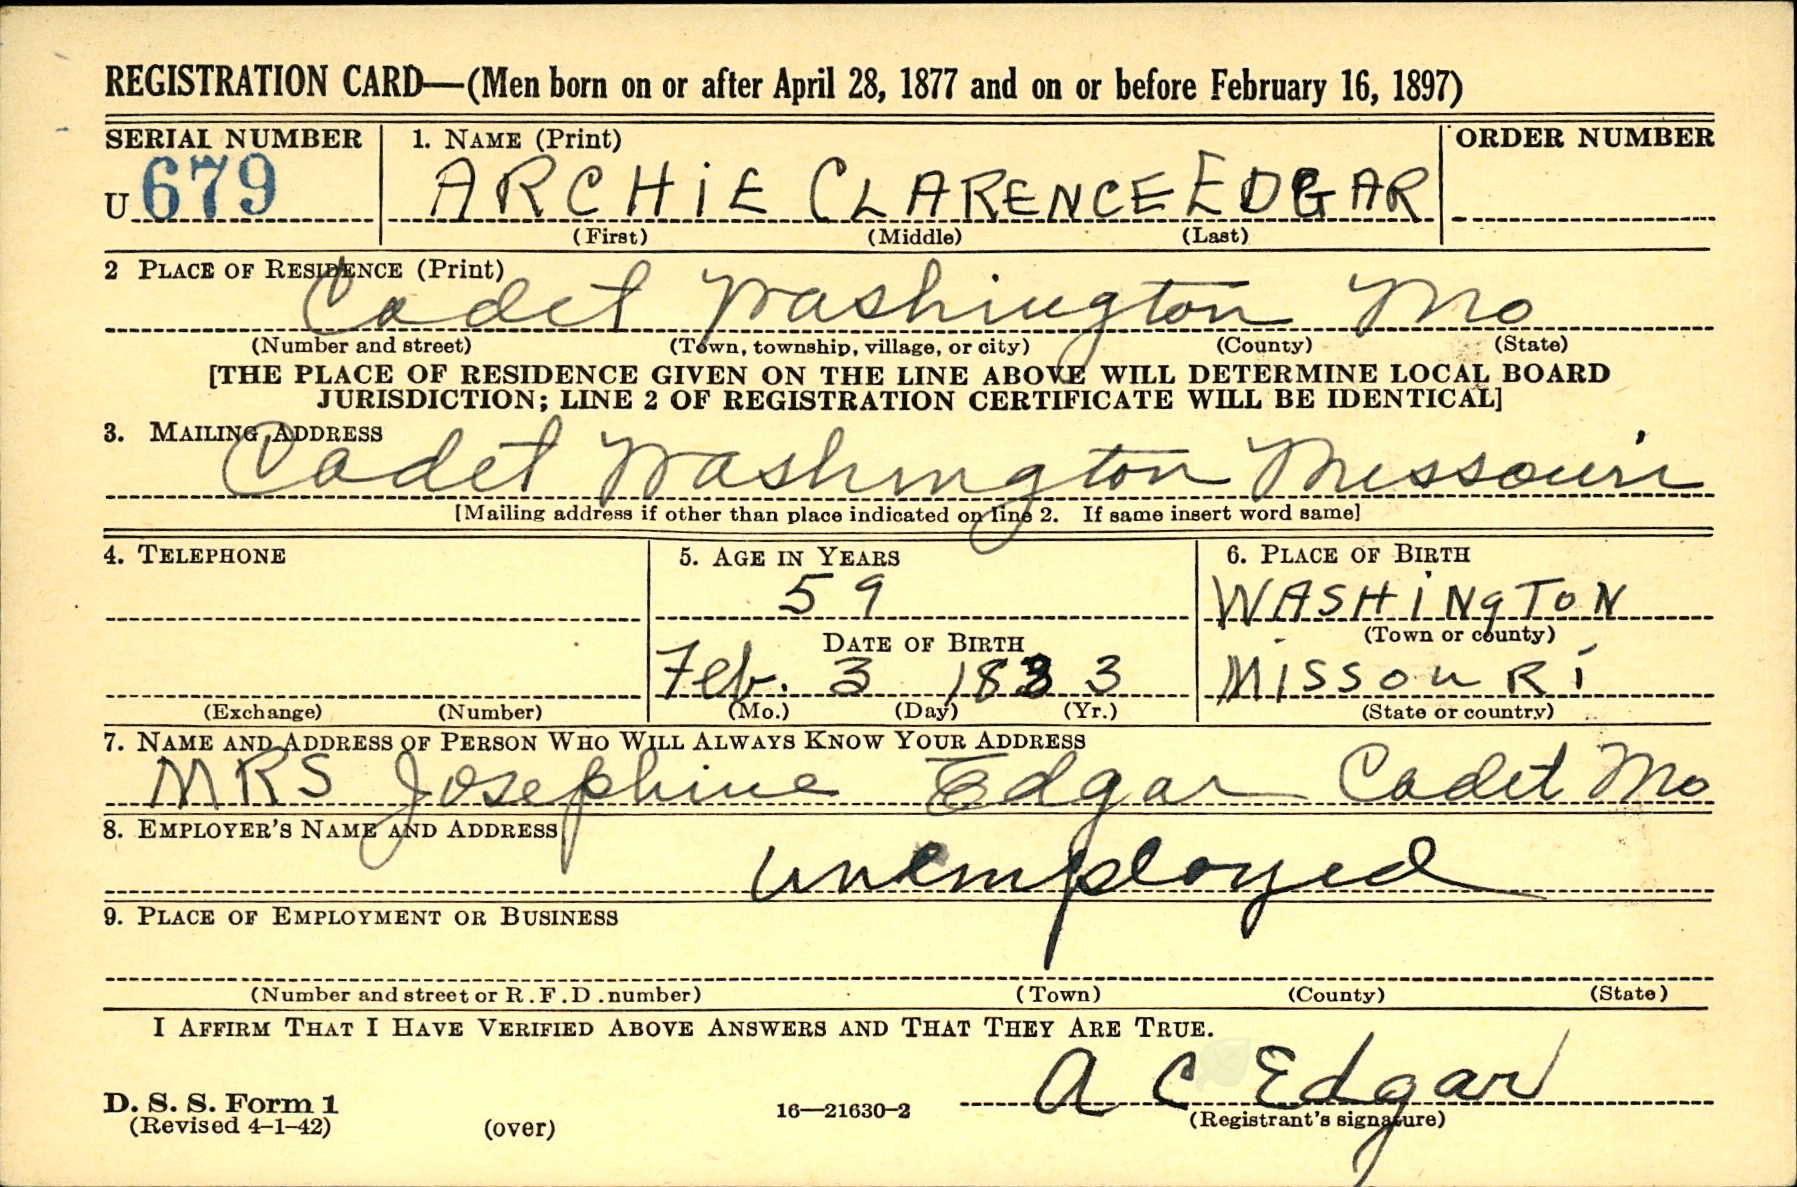 REGISTRATION CARD—(Men born on or after April 28, 1877 and on or before February 16, 1897)
SERIAL NUMBER 1. NAME (Print) ORDER NUMBER
U 679 ARCHiE CLARENCE EDGAR
(First) (Middle) (Last)
2 PLACE OF RESIDENCE (Print)
Cadet Washington Mo
(Number and street) (Town, township, village, or city) (County) (State)
[THE PLACE OF RESIDENCE GIVEN ON THE LINE ABOVE WILL DETERMINE LOCAL BOARD
JURISDICTION; LINE 2 OF REGISTRATION CERTIFICATE WILL BE IDENTICAL]
3. MAILING ADDRESS
Cadet Washington Missouri
[Mailing address if other than place indicated on line 2. If same insert word same]
4. TELEPHONE 5. AGE IN YEARS 6. PLACE OF BIRTH
59 WASHiNgToN
DATE OF BIRTH (Town or county)
Feb. 3 1883 MissouRi
(Exchange) (Number) (Mo.) (Day) (Yr.) (State or country)
7. NAME AND ADDRESS OF PERSON WHO WILL ALWAYS KNOW YOUR ADDRESS
MRS Josephine Edgar Cadet Mo
8. EMPLOYER'S NAME AND ADDRESS
unemployed
9. PLACE OF EMPLOYMENT OR BUSINESS
(Number and street or R.F.D. number) (Town) (County) (State)
I AFFIRM THAT I HAVE VERIFIED ABOVE ANSWERS AND THAT THEY ARE TRUE.
A C Edgar
D. S. S. Form 1 16—21630-2 (Registrant's signature)
(Revised 4-1-42) (over)